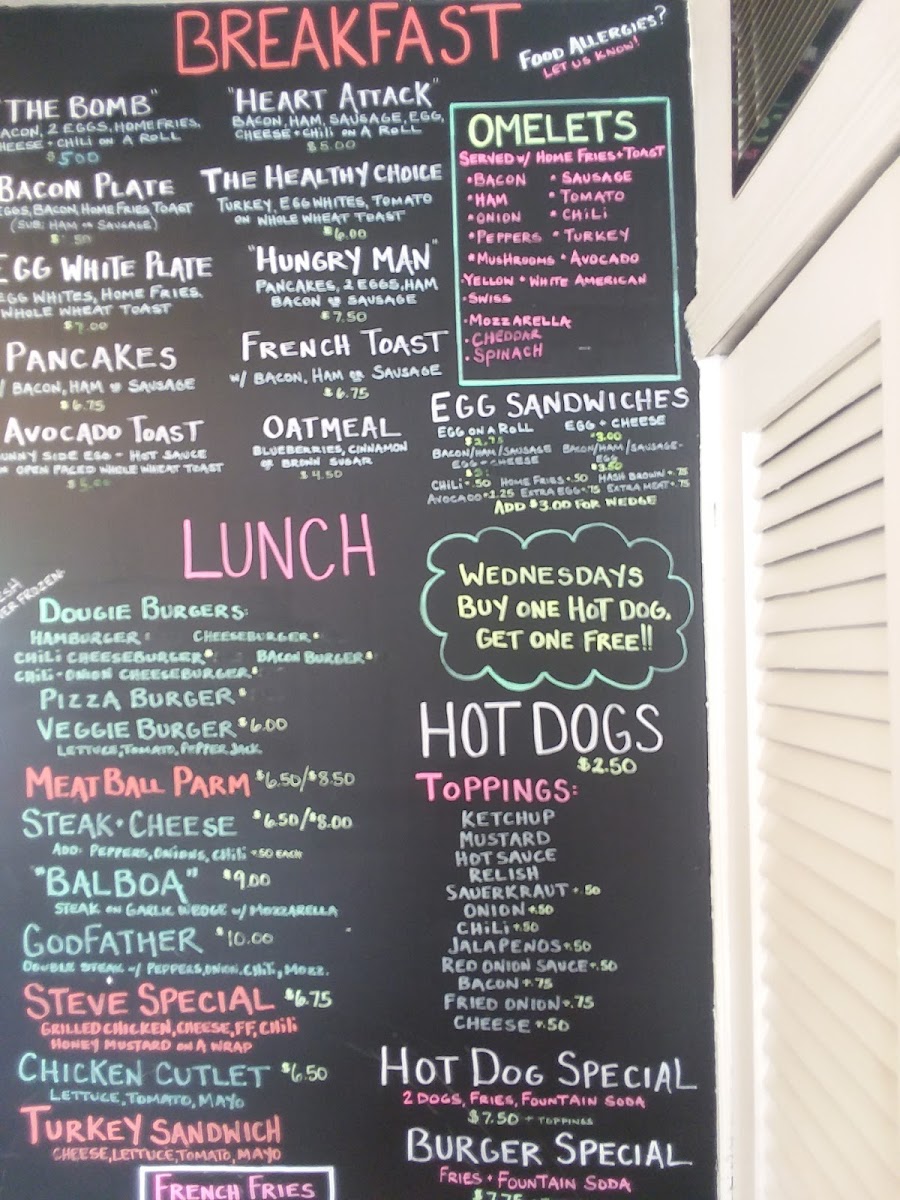 BREAKFAST
FOOD ALLERGIES?
LET US KNOW!
"THE BOMB"
BACON, 2 EGGS, HOMEFRIES,
CHEESE + CHILI ON A ROLL
$5.00
"HEART ATTACK"
BACON, HAM, SAUSAGE, EGG,
CHEESE + CHILI ON A ROLL
$5.00
BACON PLATE
EGGS, BACON, HOME FRIES, TOAST
(SUB: HAM OR SAUSAGE)
THE HEALTHY CHOICE
TURKEY, EGG WHITES, TOMATO
ON WHOLE WHEAT TOAST
$6.00
EGG WHITE PLATE
EGG WHITES, HOME FRIES,
WHOLE WHEAT TOAST
$7.00
"HUNGRY MAN"
PANCAKES, 2 EGGS, HAM
BACON OR SAUSAGE
$7.50
PANCAKES
W/ BACON, HAM OR SAUSAGE
$6.75
FRENCH TOAST
W/ BACON, HAM OR SAUSAGE
$6.75
AVOCADO TOAST
SUNNY SIDE EGG - HOT SAUCE
OPEN FACED WHOLE WHEAT TOAST
$5.00
OATMEAL
BLUEBERRIES, CINNAMON
OR BROWN SUGAR
$4.50
OMELETS
SERVED W/ HOME FRIES + TOAST
• BACON • SAUSAGE
• HAM • TOMATO
• ONION • CHILI
• PEPPERS • TURKEY
• MUSHROOMS • AVOCADO
• YELLOW + WHITE AMERICAN
• SWISS
• MOZZARELLA
• CHEDDAR
• SPINACH
EGG SANDWICHES
EGG ON A ROLL EGG + CHEESE
$2.75 $3.00
BACON/HAM/SAUSAGE BACON/HAM/SAUSAGE-
EGG + CHEESE EGG
$3.50
CHILI + .50 HOME FRIES + .50 HASH BROWN + .75
AVOCADO + 1.25 EXTRA EGG + .75 EXTRA MEAT + .75
ADD $3.00 FOR WEDGE
LUNCH
DOUGIE BURGERS:
HAMBURGER CHEESEBURGER
CHILI CHEESEBURGER BACON BURGER
CHILI-ONION CHEESEBURGER
PIZZA BURGER
VEGGIE BURGER $6.00
LETTUCE, TOMATO, PEPPER JACK
MEATBALL PARM $6.50/$8.50
STEAK + CHEESE $6.50/$8.00
ADD: PEPPERS, ONIONS, CHILI +.50 EACH
"BALBOA" $9.00
STEAK ON GARLIC WEDGE W/ MOZZARELLA
GODFATHER $10.00
DOUBLE STEAK W/ PEPPERS, ONION, CHILI, MOZZ.
STEVE SPECIAL $6.75
GRILLED CHICKEN, CHEESE, FF, CHILI
HONEY MUSTARD ON A WRAP
CHICKEN CUTLET $6.50
LETTUCE, TOMATO, MAYO
TURKEY SANDWICH
CHEESE, LETTUCE, TOMATO, MAYO
FRENCH FRIES
WEDNESDAYS
BUY ONE HOT DOG,
GET ONE FREE!!
HOT DOGS
$2.50
TOPPINGS:
KETCHUP
MUSTARD
HOT SAUCE
RELISH
SAUERKRAUT + .50
ONION +.50
CHILI +.50
JALAPENOS +.50
RED ONION SAUCE +.50
BACON +.75
FRIED ONION +.75
CHEESE +.50
HOT DOG SPECIAL
2 DOGS, FRIES, FOUNTAIN SODA
$7.50 + TOPPINGS
BURGER SPECIAL
FRIES + FOUNTAIN SODA
$7.75